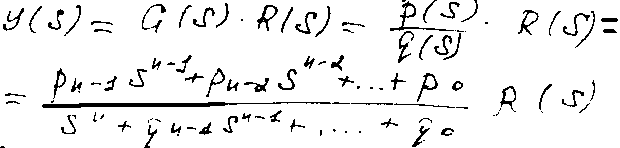 y(s) = G(s) · R(s) = p(s)/q(s) · R(s) =
= (p_{n-1} s^{n-1} + p_{n-2} s^{n-2} + ... + p_0)/(s^n + q_{n-1} s^{n-1} + .... + q_0) R(s)